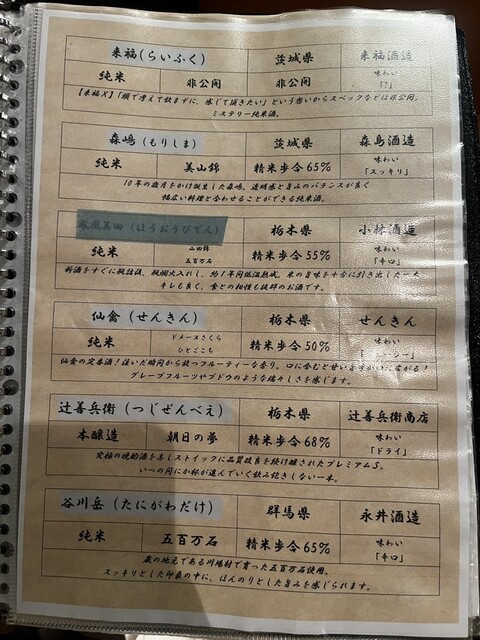 来福(らいふく) 茨城県 来福酒造
純米 非公開 非公開 味わい
「?」
【来福X】「頭で考えて飲まずに、感じて頂きたい」という想いからスペックなどは非公開。
ミステリー純米酒。
森嶋(もりしま) 茨城県 森島酒造
純米 美山錦 精米歩合65% 味わい
「スッキリ」
10年の歳月をかけ誕生した森嶋。透明感と旨みのバランスが良く
幅広い料理と合わせることができる純米酒。
鳳凰美田(ほうおうびでん) 栃木県 小林酒造
純米 山田錦 精米歩合55% 味わい
五百万石 「辛口」
新酒をすぐに瓶詰後、瓶燗火入れし、約1年間低温熟成。米の旨味を十分に引き出した一本
キレも良く、食との相性も抜群のお酒です。
仙禽(せんきん) 栃木県 せんきん
純米 ドメーヌさくら 精米歩合50% 味わい
ひとごこち 「 ーシー」
仙禽の定番酒!注いだ瞬間から放つフルーティーな香り。口に含むと甘い 広がる!
グレープフルーツやブドウのような瑞々しさを感じます。
辻善兵衛(つじぜんべえ) 栃木県 辻善兵衛商店
本醸造 朝日の夢 精米歩合68% 味わい
「ドライ」
究極の晩酌酒を志しストイックに品質改良を続け醸されたプレミアムS。
いつの間にか杯が進んでいく飲み飽きしない一本。
谷川岳(たにがわだけ) 群馬県 永井酒造
純米 五百万石 精米歩合65% 味わい
「辛口」
蔵の地元である川場村で育った五百万石使用。
スッキリとした印象の中に、ほんのりとした旨みを感じられます。